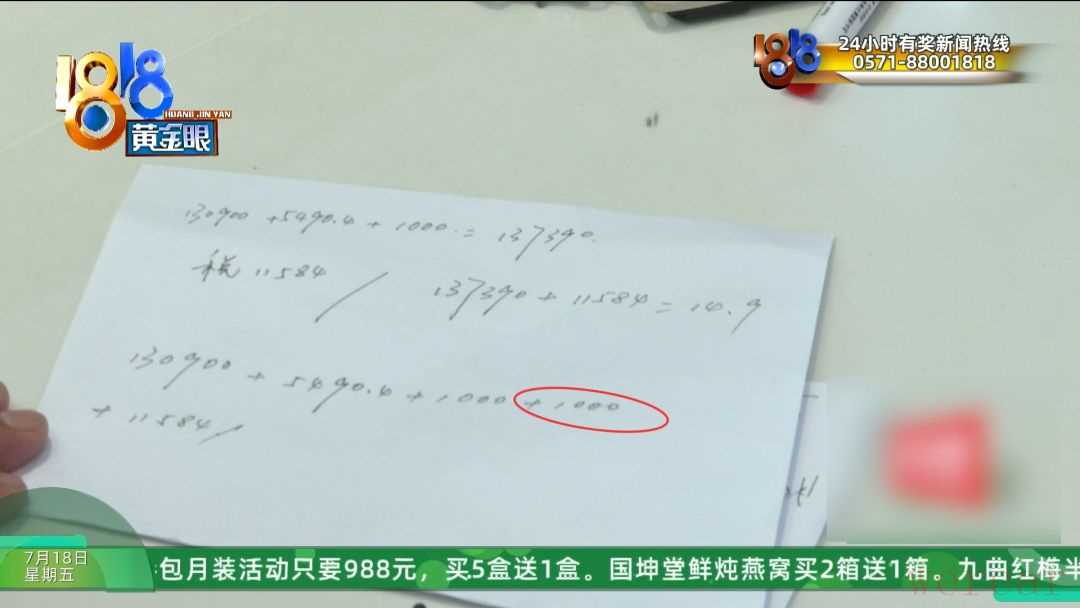 1818
HUANG JIN YAN
黄金眼
1818
24小时有奖新闻热线
0571-88001818
130900 + 5490.4 + 1000 = 137390.
税 11584 / 137390 + 11584 = 14.9
130900 + 5490.4 + 1000 + 1000
+ 11584 /
7月18日
星期五
包月装活动只要988元，买5盒送1盒。国坤堂鲜炖燕窝买2箱送1箱。九曲红梅半